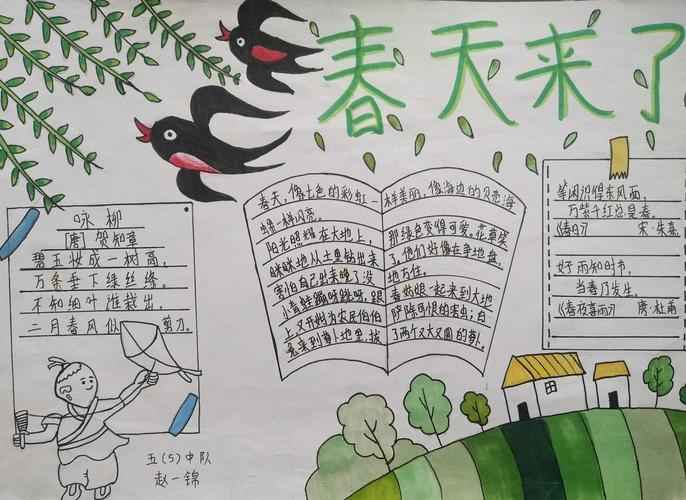 春天来了
咏柳
[唐]贺知章
碧玉妆成一树高,
万条垂下绿丝绦。
不知细叶谁裁出,
二月春风似剪刀.
春天,像七色的彩虹一样美丽,像海边的贝壳海
一样闪亮。
阳光照耀在大地上,那绿色变得可爱。花草笑
眯眯地从土里钻出来了,他们好像在争地盘,
害怕自己出来晚了没地方住。
小青蛙蹦呀跳呀,跟春姑娘一起来到大地
上又开始为农民伯伯铲除可恨的害虫;白
兔来到萝卜地里,拔了两个又大又圆的萝卜。
等闲识得东风面,
万紫千红总是春。
《春日》 宋·朱熹
好雨知时节,
当春乃发生。
《春夜喜雨》 唐·杜甫
五(5)中队
赵一锦